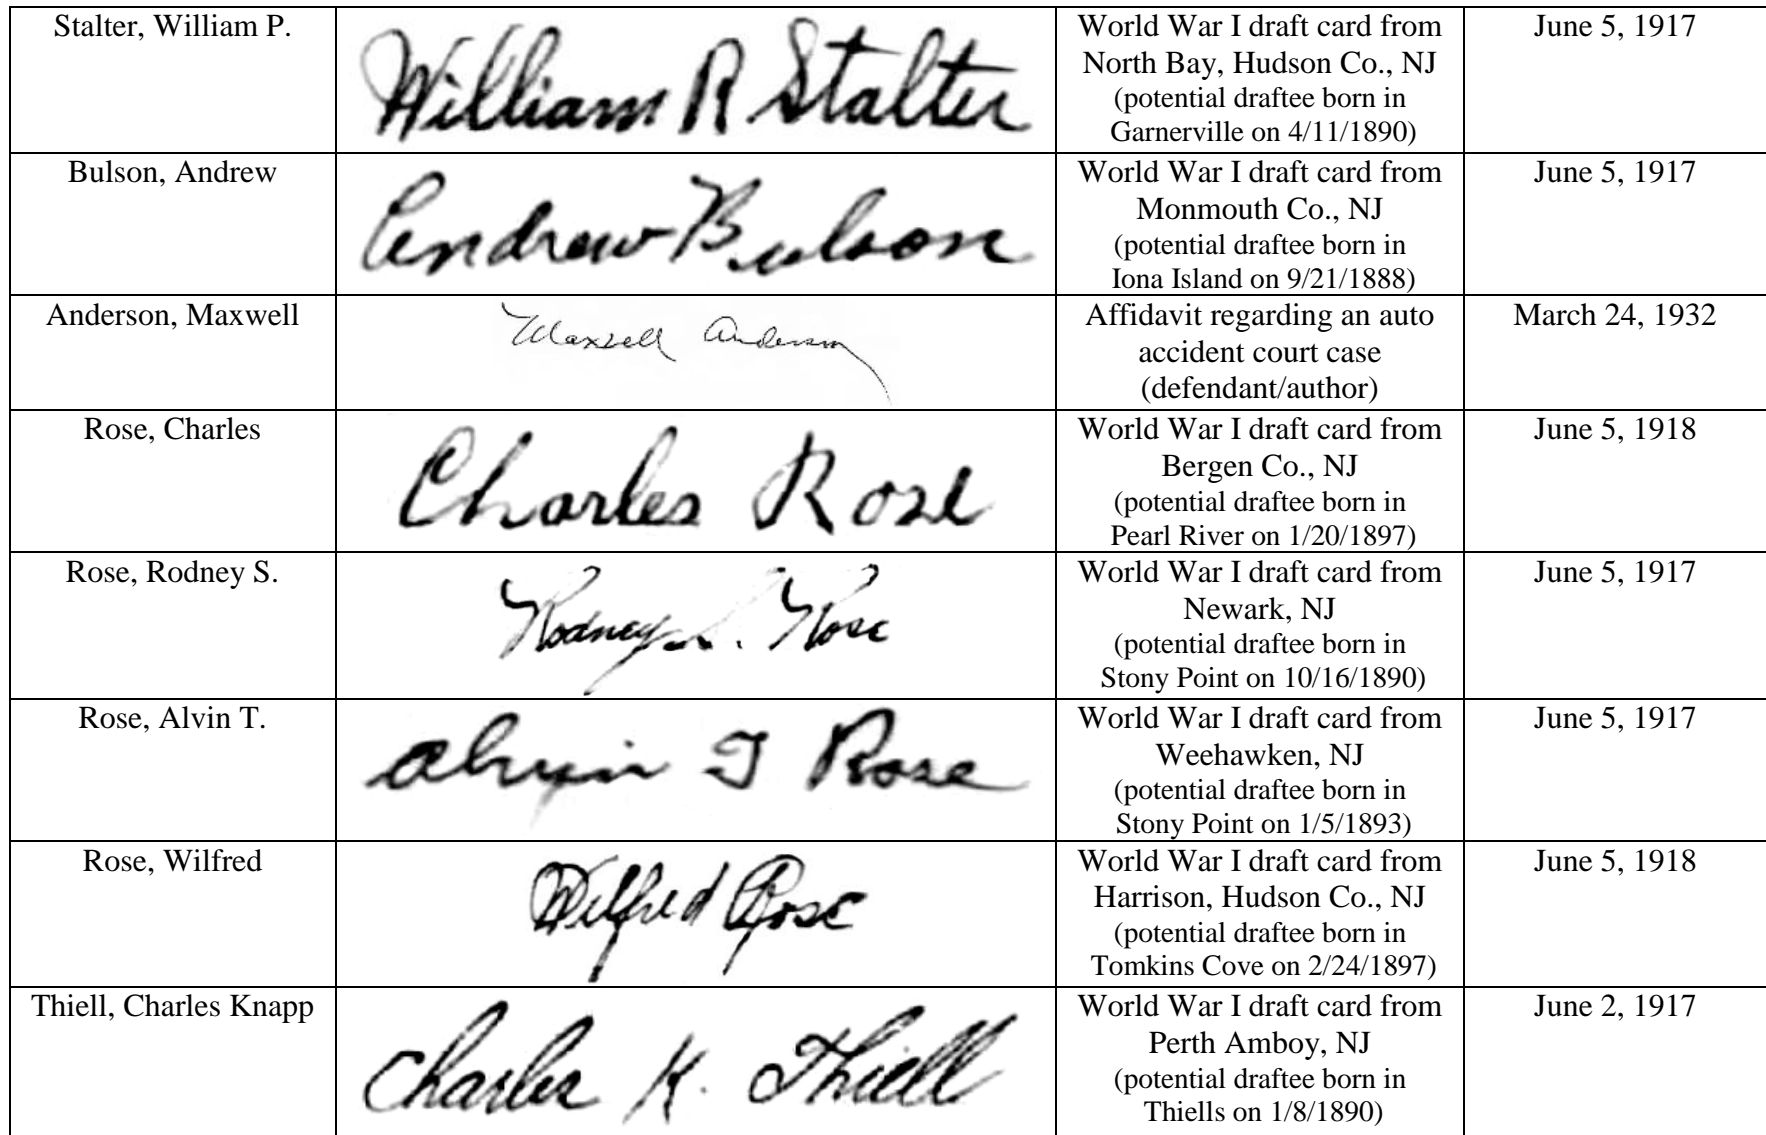 Stalter, William P.
William R Stalter
World War I draft card from
North Bay, Hudson Co., NJ
(potential draftee born in
Garnerville on 4/11/1890)
June 5, 1917
Bulson, Andrew
Andrew Bulson
World War I draft card from
Monmouth Co., NJ
(potential draftee born in
Iona Island on 9/21/1888)
June 5, 1917
Anderson, Maxwell
Maxwell Anderson
Affidavit regarding an auto
accident court case
(defendant/author)
March 24, 1932
Rose, Charles
Charles Rose
World War I draft card from
Bergen Co., NJ
(potential draftee born in
Pearl River on 1/20/1897)
June 5, 1918
Rose, Rodney S.
Rodney S. Rose
World War I draft card from
Newark, NJ
(potential draftee born in
Stony Point on 10/16/1890)
June 5, 1917
Rose, Alvin T.
Alvin T Rose
World War I draft card from
Weehawken, NJ
(potential draftee born in
Stony Point on 1/5/1893)
June 5, 1917
Rose, Wilfred
Wilfred Rose
World War I draft card from
Harrison, Hudson Co., NJ
(potential draftee born in
Tomkins Cove on 2/24/1897)
June 5, 1918
Thiell, Charles Knapp
Charles K. Thiell
World War I draft card from
Perth Amboy, NJ
(potential draftee born in
Thiells on 1/8/1890)
June 2, 1917